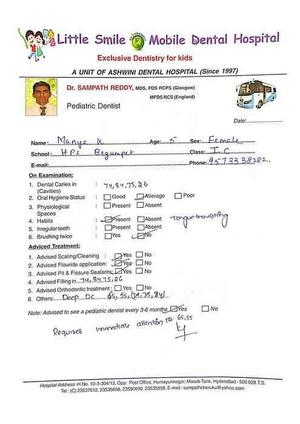 Little Smile Mobile Dental Hospital
Exclusive Dentistry for kids
A UNIT OF ASHWINI DENTAL HOSPITAL (Since 1997)
Dr. SAMPATH REDDY, MDS, FDS RCPS (Glasgow)
MFDS RCS (England)
Pediatric Dentist
Date:
Name: Manya K Age: 5 Sex: Female
School: HPS Begumpet Class: I C
E-mail: Phone:
On Examination:
1. Dental Caries in (Cavities) : 74,84,75,26
2. Oral Hygiene Status : Good Average Poor
3. Physiological Spaces :
4. Habits : Present Absent Tongue thrusting
5. Irregular teeth : Present Absent
6. Brushing twice : Yes No
Adviced Treatment:
1. Advised Scaling/Cleaning : Yes No
2. Advised Flouride application: Yes No
3. Advised Pit & Fissure Sealants: Yes No
4. Advised Filling in 74,84,75,26
5. Advised Orthodontic treatment : Yes No
6. Others: Deep DC
Note: Advised to see a pediatric dentist every 3-6 months Yes No
Requires immediate attention to 65,55
Hospital Address: H.No. 10-3-304/13, Opp. Post Office, Humayunnagar, Masab Tank, Hyderabad - 500 028. T.S.
Tel: (C) 23537612, 23535656, E-mail: sampathcheruku@yahoo.com